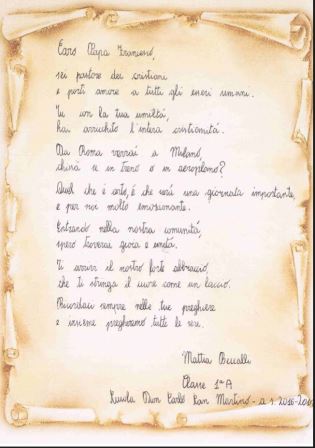 Caro Papa Francesco,
sei pastore dei cristiani
e porti amore a tutti gli esseri umani.
Tu con la tua umiltà,
hai arricchito l'intera cristianità.
Da Roma verrai a Milano,
chissà se in treno o in aeroplano?
Quel che è certo, è che sarà una giornata importante,
e per noi molto emozionante.
Entrando nella nostra comunità,
spero troverai gioia e unità.
Ti arrivi il nostro forte abbraccio,
che ti stringa il cuore come un laccio.
Ricordaci sempre nelle tue preghiere
e insieme pregheremo tutte le sere.
Mattia Beccalli
Classe 1ª A
Scuola Don Carlo San Martino - a.s. 2016-